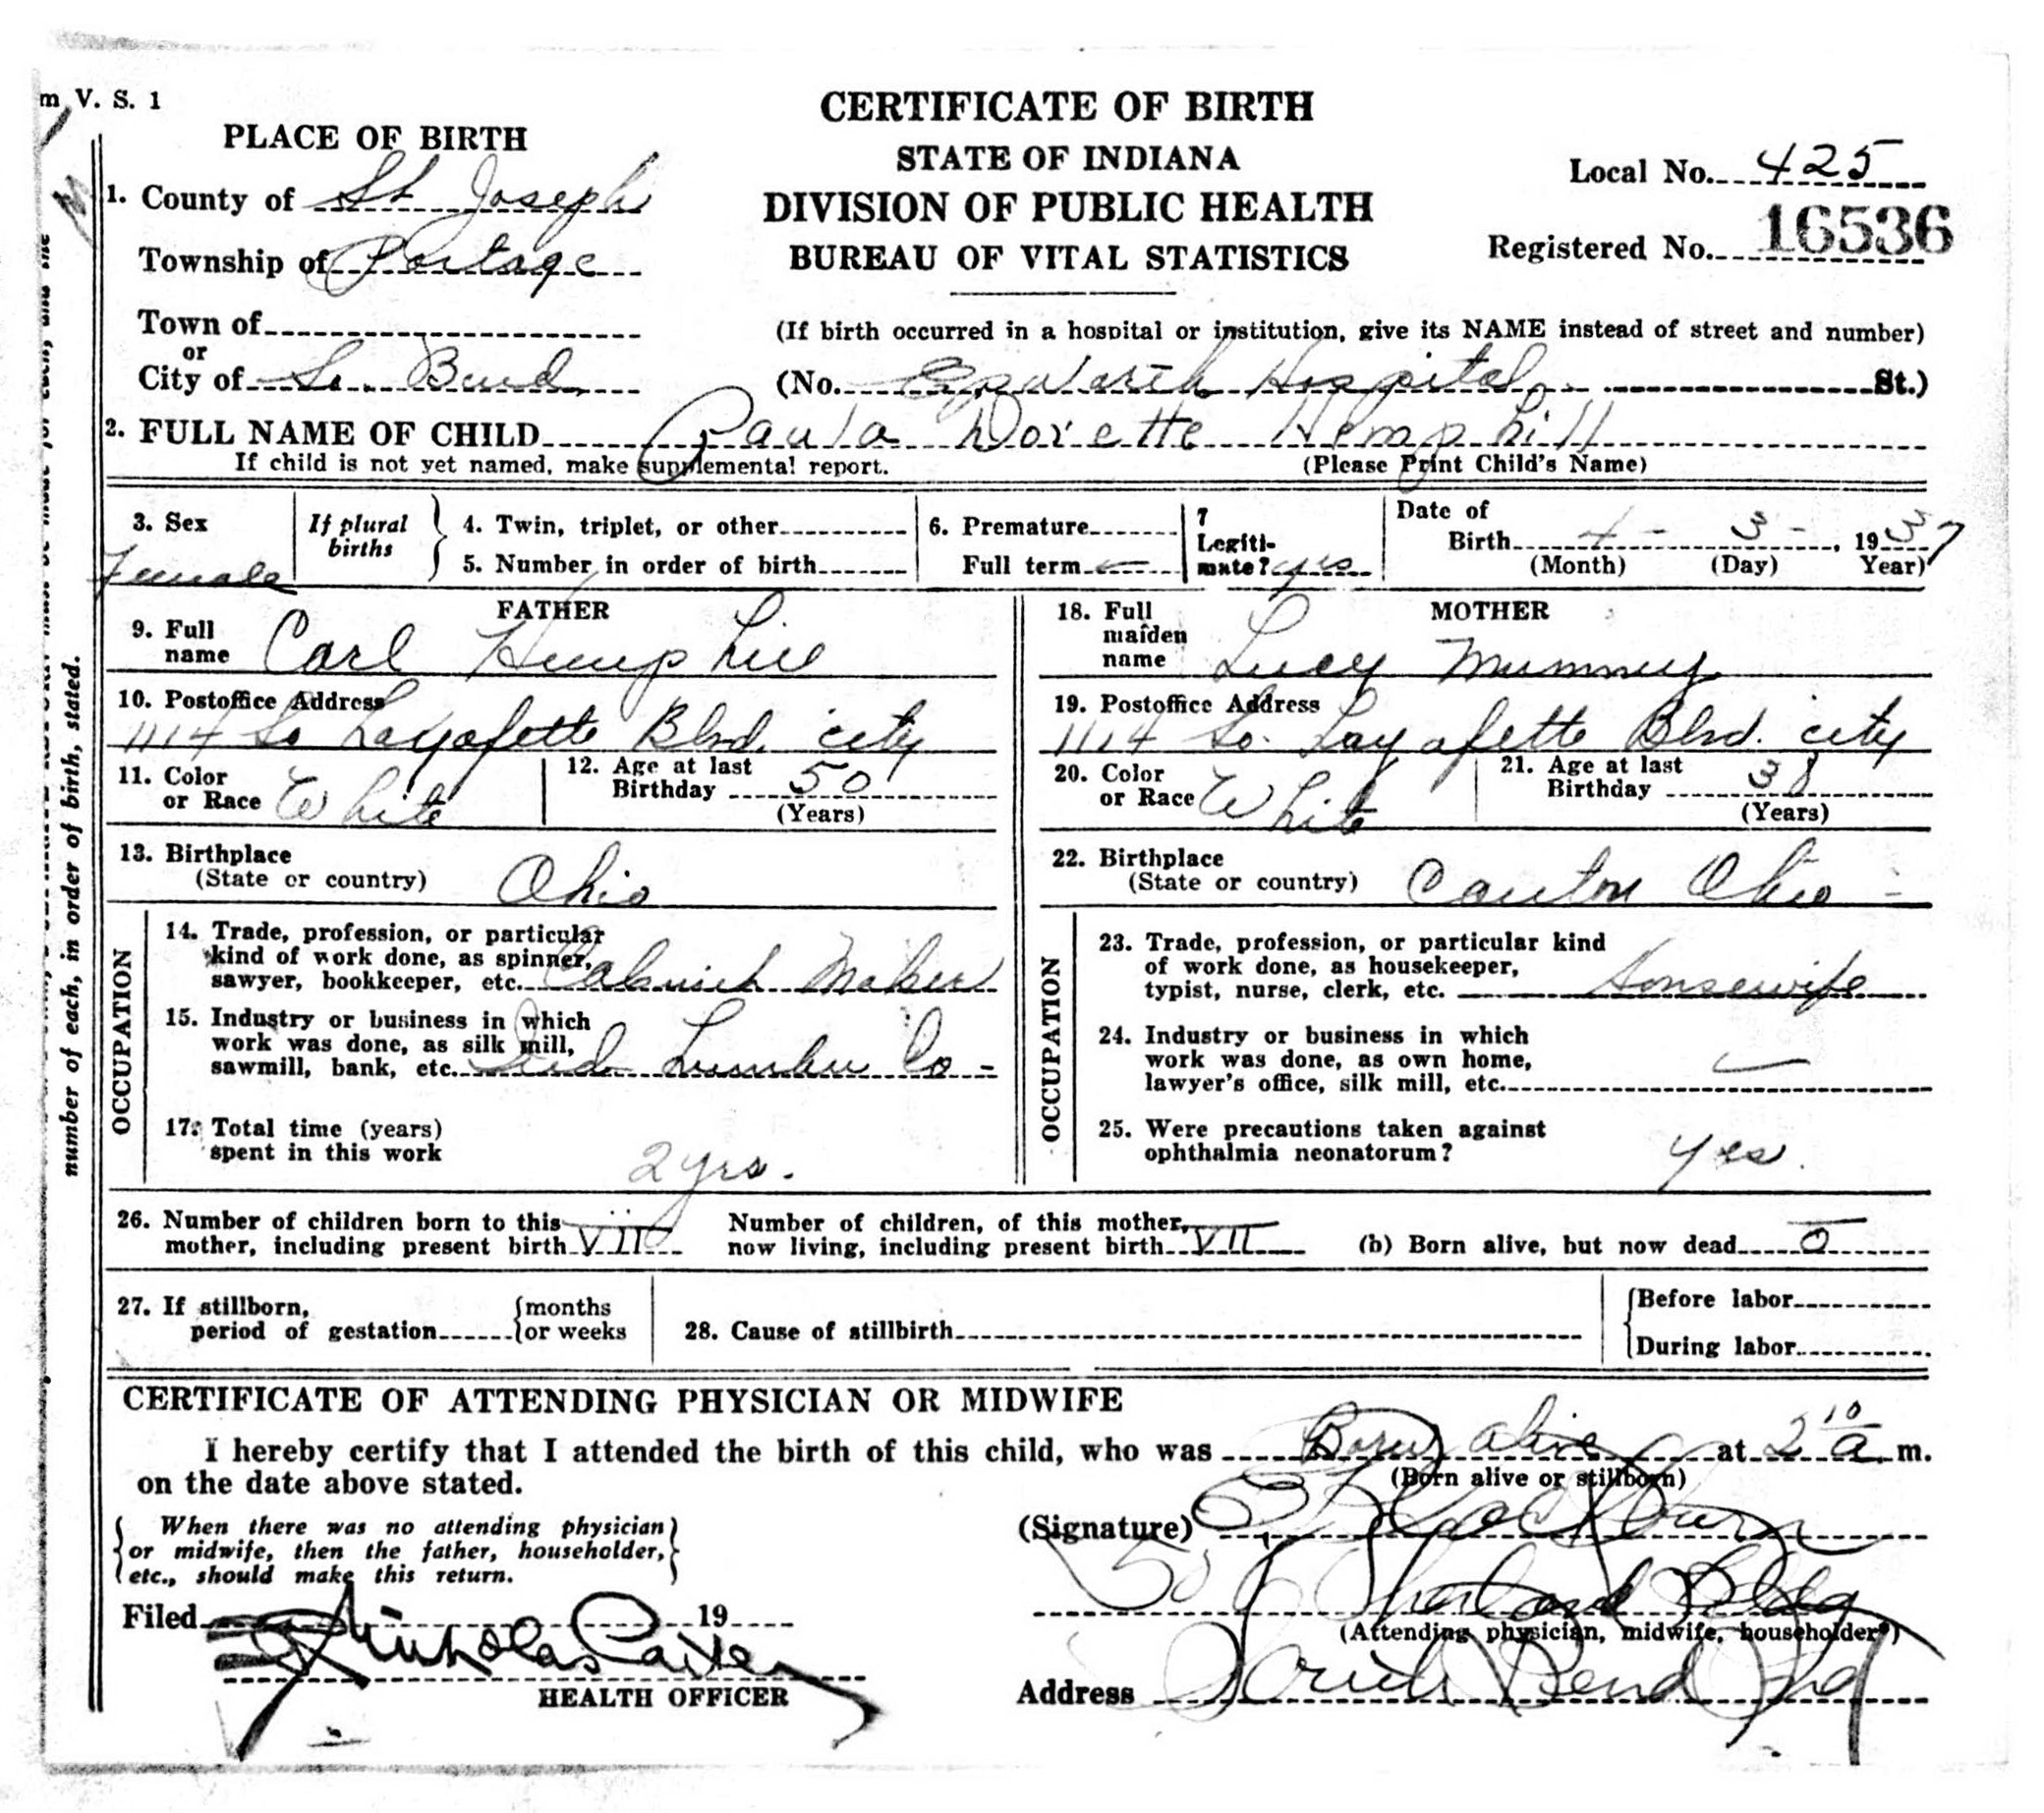 m V. S. 1
CERTIFICATE OF BIRTH
STATE OF INDIANA
DIVISION OF PUBLIC HEALTH
BUREAU OF VITAL STATISTICS
Local No. 425
Registered No. 16536
PLACE OF BIRTH
1. County of St Joseph
Township of Portage
Town of
or
City of So. Bend
(If birth occurred in a hospital or institution, give its NAME instead of street and number)
(No. Epworth Hospital St.)
2. FULL NAME OF CHILD Paula Dorette Hemphill
If child is not yet named, make supplemental report. (Please Print Child's Name)
3. Sex
Female
If plural births
4. Twin, triplet, or other
5. Number in order of birth
6. Premature
Full term
7 Legiti-
mate? yes
Date of
Birth 4 - 3 - 1937
(Month) (Day) Year)
FATHER
9. Full
name Carl Hemphill
10. Postoffice Address
1114 So Layafette Blvd. city
11. Color
or Race White
12. Age at last
Birthday 50
(Years)
13. Birthplace
(State or country) Ohio
OCCUPATION
14. Trade, profession, or particular
kind of work done, as spinner,
sawyer, bookkeeper, etc. Cabinet Maker
15. Industry or business in which
work was done, as silk mill,
sawmill, bank, etc. Ind Lumber Co -
17. Total time (years)
spent in this work 2 yrs.
MOTHER
18. Full
maiden
name Lucy Mummey
19. Postoffice Address
1114 So. Layafette Blvd. city
20. Color
or Race White
21. Age at last
Birthday 38
(Years)
22. Birthplace
(State or country) Canton Ohio -
OCCUPATION
23. Trade, profession, or particular kind
of work done, as housekeeper,
typist, nurse, clerk, etc. Housewife
24. Industry or business in which
work was done, as own home,
lawyer's office, silk mill, etc.
25. Were precautions taken against
ophthalmia neonatorum? yes.
26. Number of children born to this
mother, including present birth VII
Number of children, of this mother,
now living, including present birth VII
(b) Born alive, but now dead 0
27. If stillborn,
period of gestation {months
or weeks
28. Cause of stillbirth
Before labor
During labor
CERTIFICATE OF ATTENDING PHYSICIAN OR MIDWIFE
I hereby certify that I attended the birth of this child, who was Born alive at 2 10/a m.
(Born alive or stillborn)
on the date above stated.
When there was no attending physician
or midwife, then the father, householder,
etc., should make this return.
(Signature) Blackburn
Sherland Bldg
(Attending physician, midwife, householder)
Filed 19
Nicholas Carter
HEALTH OFFICER
Address South Bend Ind
number of each, in order of birth, stated.